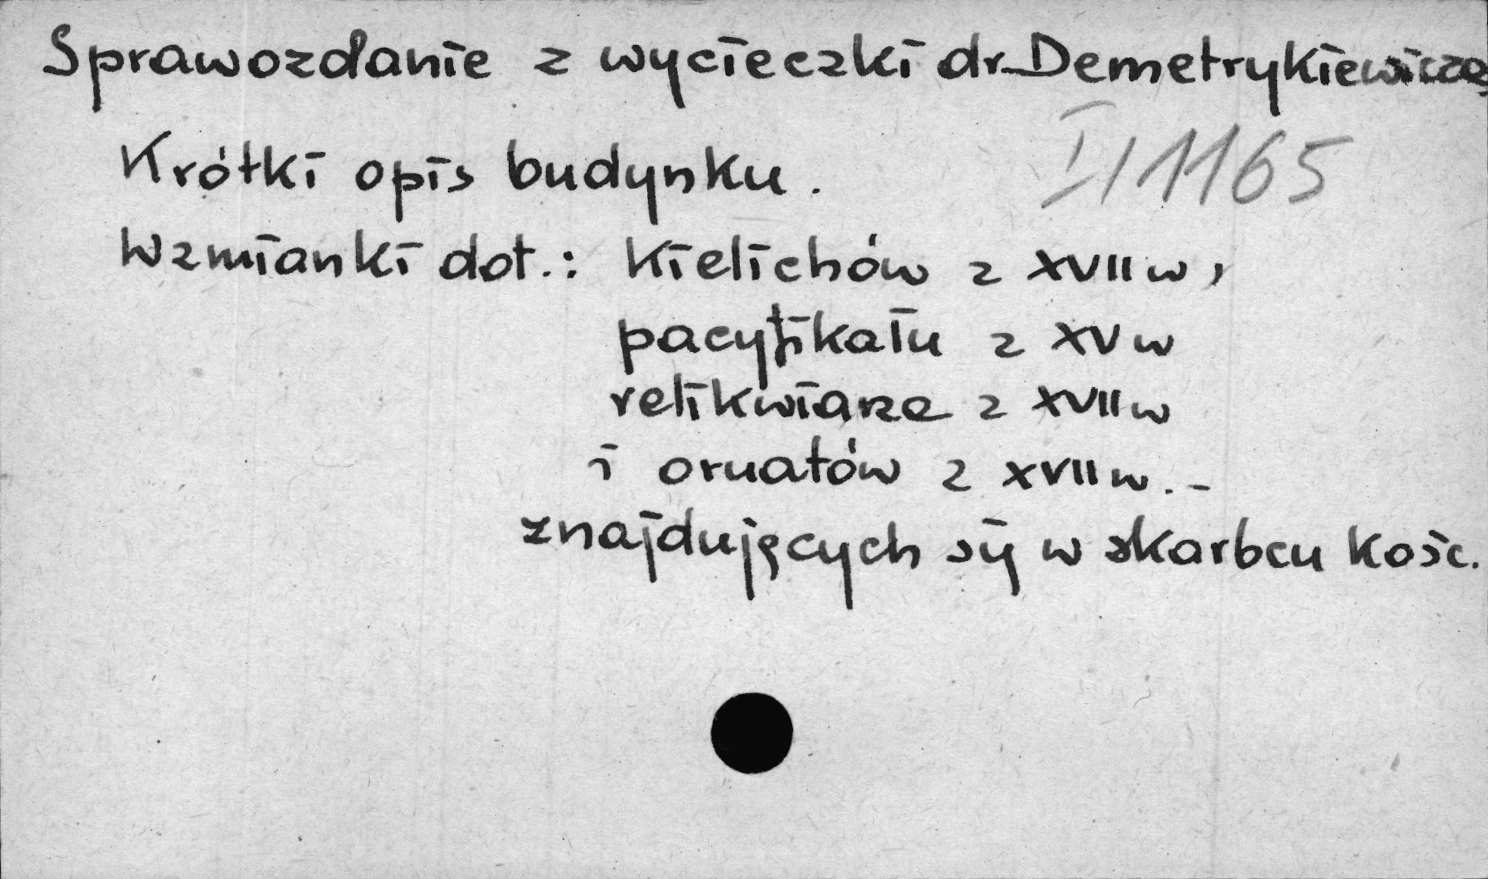 Sprawozdanie z wycieczki dr. Demetrykiewicza
I/1165
Krótki opis budynku.
Wzmianki dot.: kielichów z XVII w,
pacyfikału z XV w
relikwiarze z XVII w
i ornatów z XVII w. -
znajdujących się w skarbcu kośc.